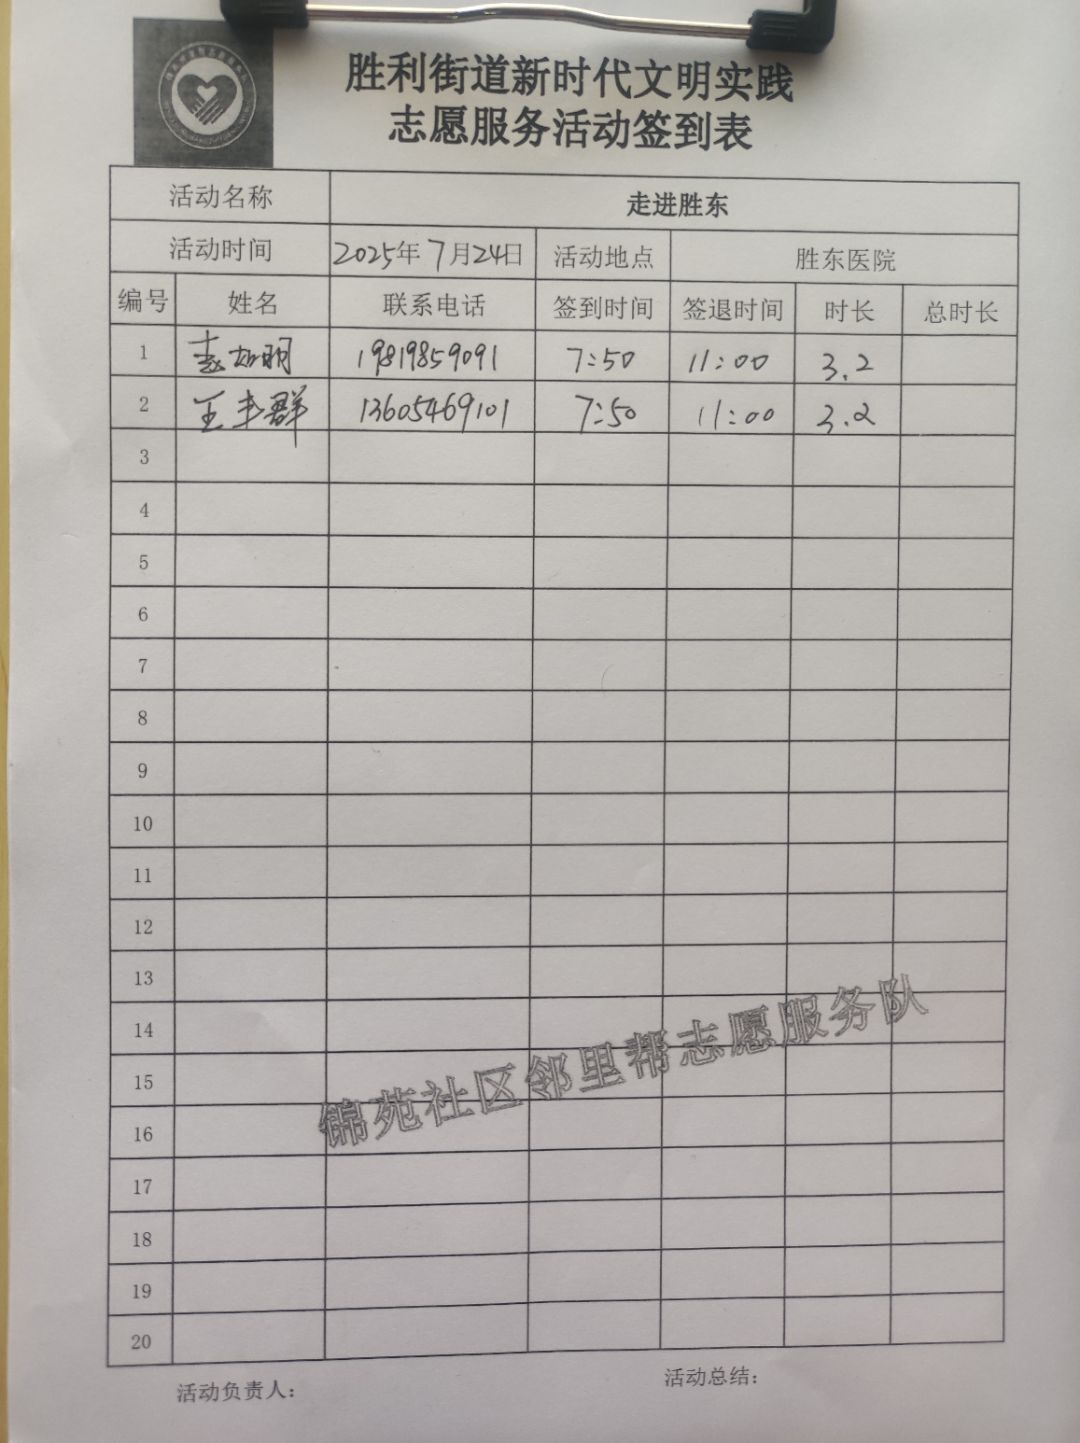 胜利街道新时代文明实践
志愿服务活动签到表
活动名称 走进胜东
活动时间 2025年7月24日 活动地点 胜东医院
编号 姓名 联系电话 签到时间 签退时间 时长 总时长
1 19819859091 7:50 11:00 3.2
2 王丰群 13605469101 7:50 11:00 3.2
3
4
5
6
7
8
9
10
11
12
13
14
15
16
17
18
19
20
锦苑社区邻里帮志愿服务队
活动负责人: 活动总结: